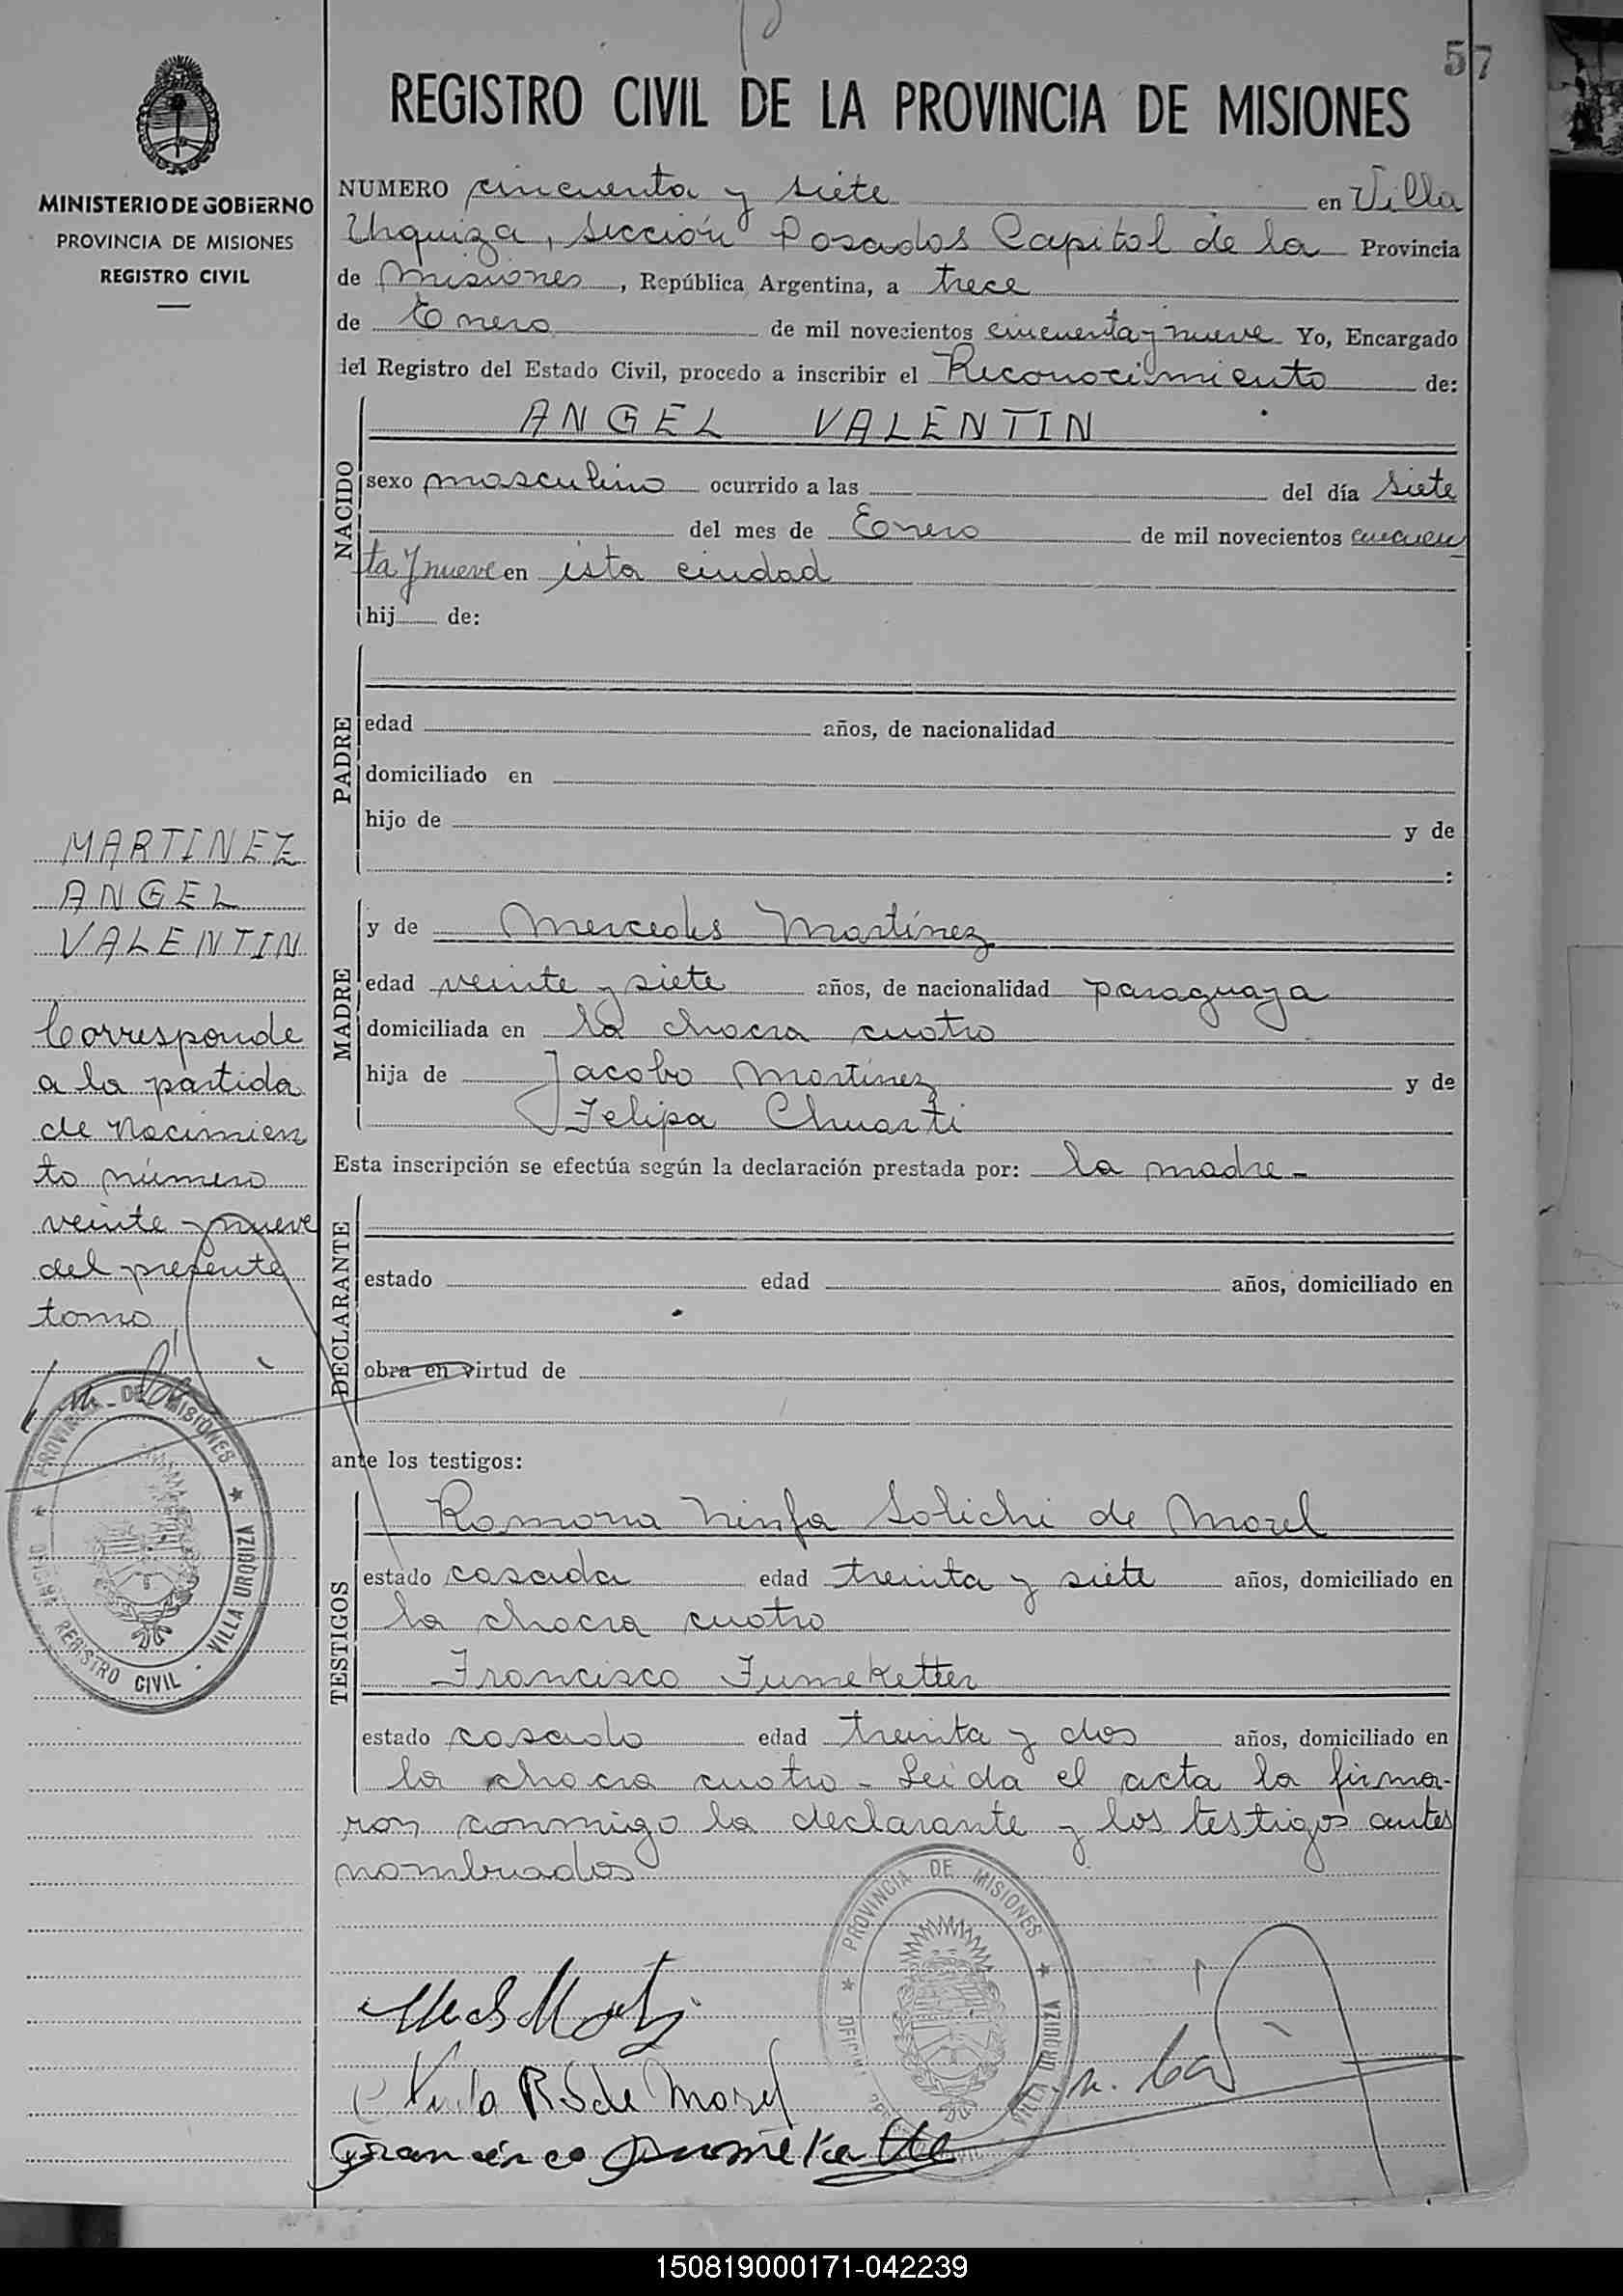 57
REGISTRO CIVIL DE LA PROVINCIA DE MISIONES
MINISTERIO DE GOBIERNO
PROVINCIA DE MISIONES
REGISTRO CIVIL
NUMERO cincuenta y siete en Villa
Urquiza, sección Posadas Capital de la Provincia
de Misiones, República Argentina, a trece
de Enero de mil novecientos cincuenta y nueve Yo, Encargado
del Registro del Estado Civil, procedo a inscribir el Reconocimiento de:
NACIDO
ANGEL VALENTIN
sexo masculino ocurrido a las del día siete
del mes de Enero de mil novecientos cincuen
ta y nueve en ésta ciudad
hij de:
PADRE
edad años, de nacionalidad
domiciliado en
hijo de y de
:
MADRE
y de Mercedes Martínez
edad veinte y siete años, de nacionalidad paraguaya
domiciliada en la chacra cuatro
hija de Jacobo Martínez y de
Felipa Chuarti
Esta inscripción se efectúa según la declaración prestada por: la madre-
DECLARANTE
estado edad años, domiciliado en
obra en virtud de
ante los testigos:
TESTIGOS
Ramona Ninfa Solichi de Morel
estado casada edad treinta y siete años, domiciliado en
la chacra cuatro
Francisco Fumeketter
estado casado edad treinta y dos años, domiciliado en
la chacra cuatro - Leida el acta la firma-
ron conmigo la declarante y los testigos antes
nombrados
MARTINEZ
ANGEL
VALENTIN
Corresponde
a la partida
de Nacimien
to número
veinte y nueve
del presente
tomo
PROVINCIA DE MISIONES
OFICINA REGISTRO CIVIL - VILLA URQUIZA
R S de Morel
Francisco
PROVINCIA DE MISIONES
VILLA URQUIZA
150819000171-042239